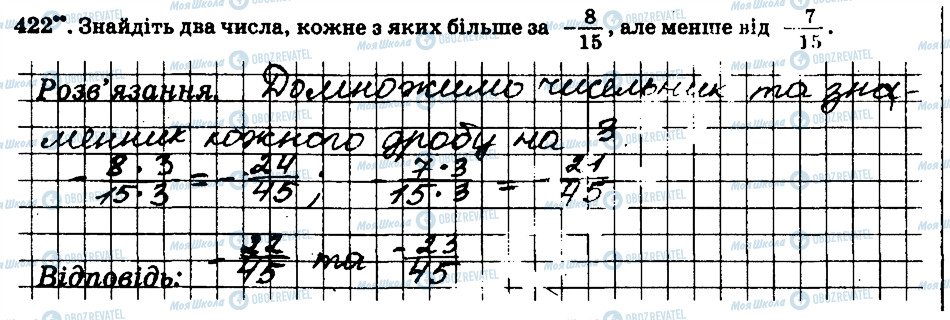 422••. Знайдіть два числа, кожне з яких більше за −8/15, але менше від −7/15.
Розв'язання. Домножимо чисельник та зна-
менник кожного дробу на 3
- 8·3/15·3 = - 24/45; - 7·3/15·3 = - 21/45
Відповідь: - 22/45 та -23/45